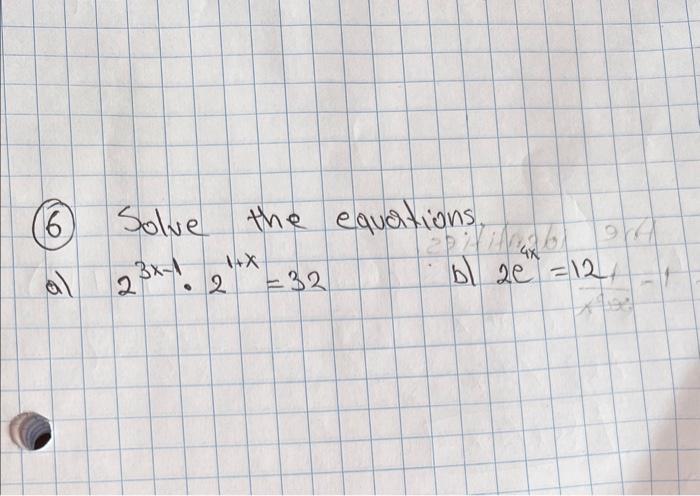 6 Solve the equations.
a) 2^{3x-1} · 2^{1+x} = 32 b) 2e^{4x} = 12